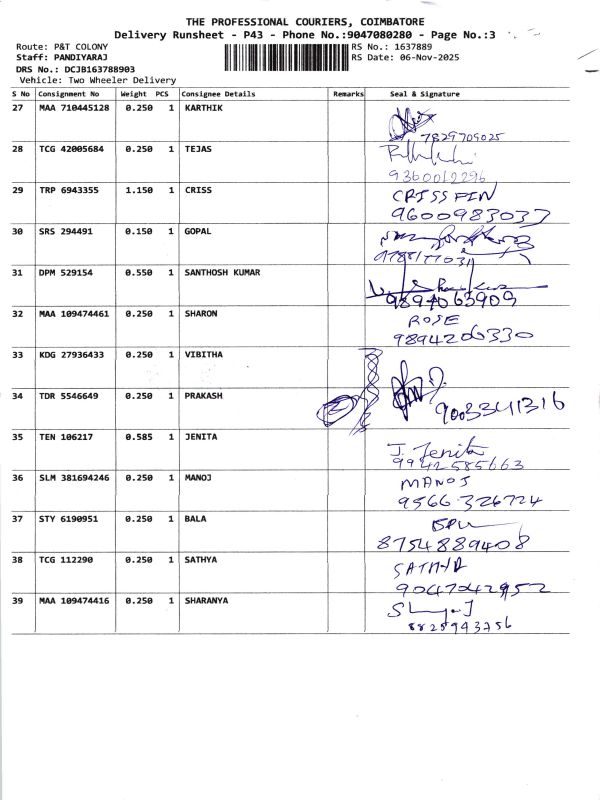 THE PROFESSIONAL COURIERS, COIMBATORE
Delivery Runsheet - P43 - Phone No.:9047080280 - Page No.:3
Route: P&T COLONY RS No.: 1637889
Staff: PANDIYARAJ RS Date: 06-Nov-2025
DRS No.: DCJB163788903
Vehicle: Two Wheeler Delivery
S No Consignment No Weight PCS Consignee Details Remarks Seal & Signature
27 MAA 710445128 0.250 1 KARTHIK
7829709025
28 TCG 42005684 0.250 1 TEJAS
9360012296
29 TRP 6943355 1.150 1 CRISS CRISS FIN
9600983037
30 SRS 294491 0.150 1 GOPAL
9788177031
31 DPM 529154 0.550 1 SANTHOSH KUMAR
9894063909
32 MAA 109474461 0.250 1 SHARON ROSE
9894206330
33 KDG 27936433 0.250 1 VIBITHA
34 TDR 5546649 0.250 1 PRAKASH
9003341316
35 TEN 106217 0.585 1 JENITA J. Jenita
9942585663
36 SLM 381694246 0.250 1 MANOJ MANOJ
9566326724
37 STY 6190951 0.250 1 BALA
8754889408
38 TCG 112290 0.250 1 SATHYA SATHYA
9047042952
39 MAA 109474416 0.250 1 SHARANYA
8825943756